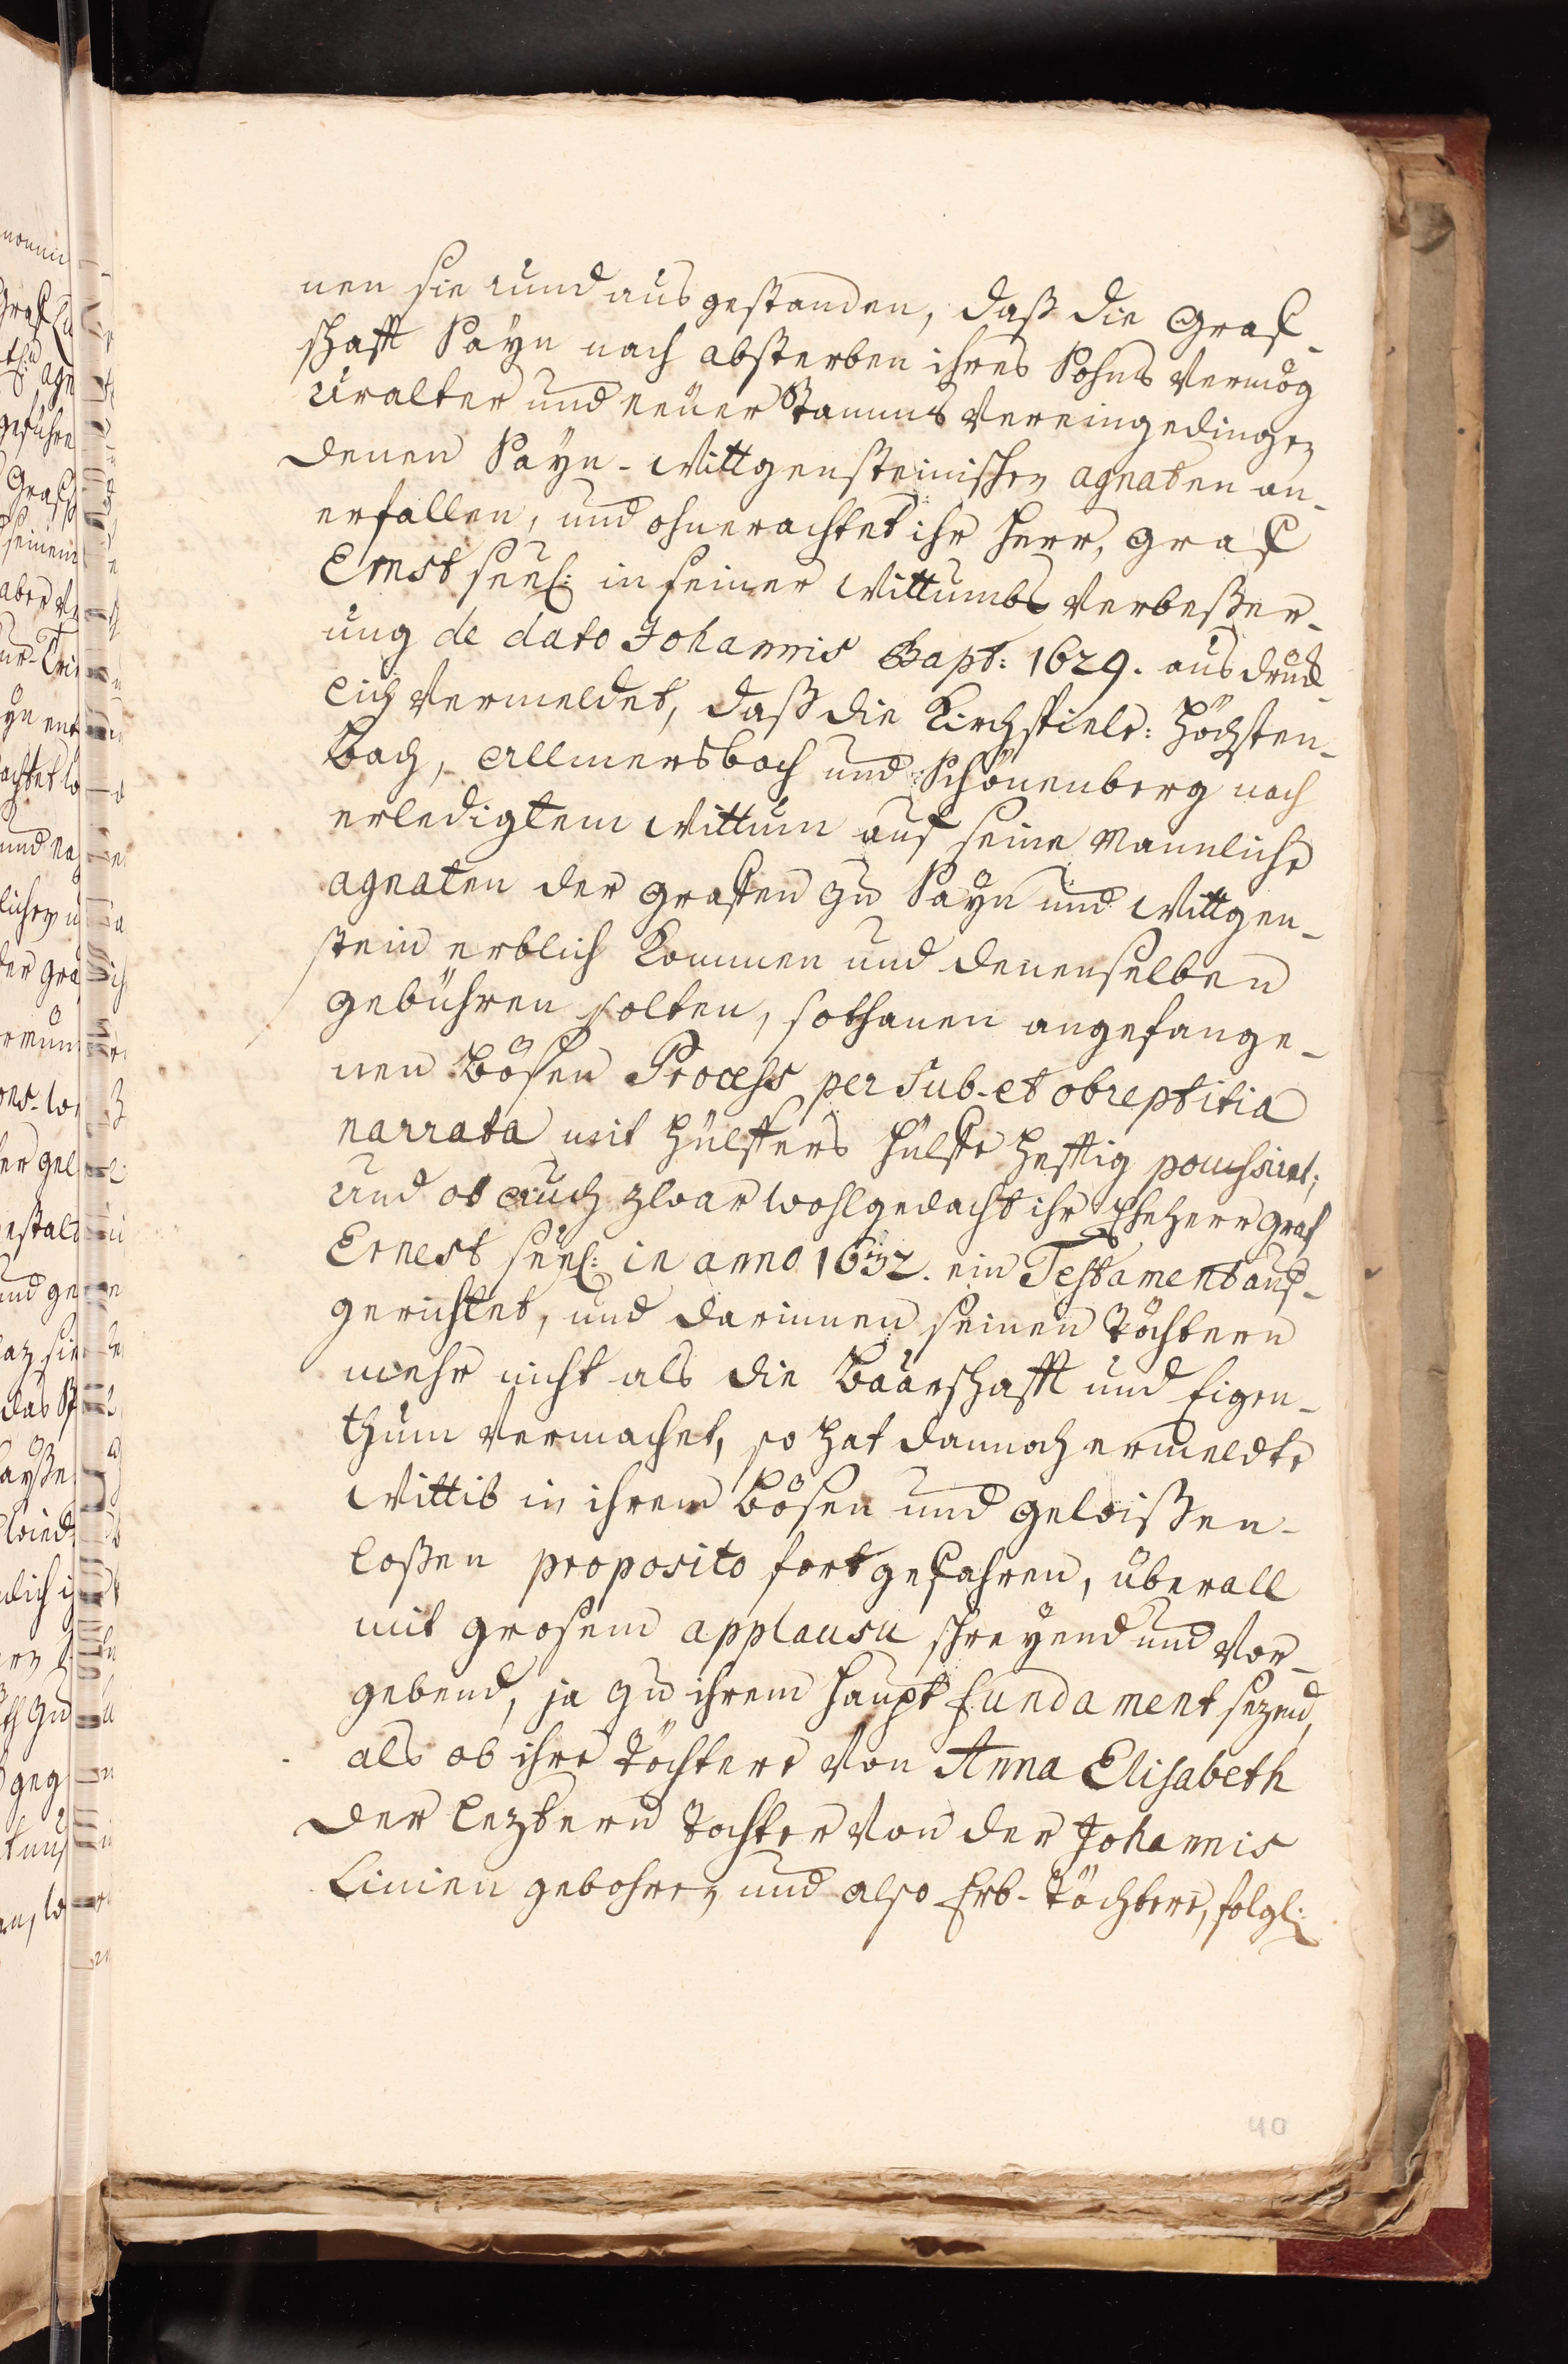 nen sie rund aus gestanden, daß die Graf-
schafft Sayn nach absterben ihres Sohns Vermög
Uralter und neuer Stamms Vereingedingen
denen Sayn-Wittgensteinischen agnaten an-
erfallen, und ohnerachtet ihr Herr, Graf
Ernst seel: in seiner Wittumbs Verbeßer-
ung de dato Johannis Bapt: 1629. ausdrück-
lich Vermeldet, daß die Kirchspiele: Höchsten-
bach, Allmersbach und Schönenberg nach
erledigtem Wittum auf seine Mannliche
agnaten der Graffen zu Sayn und Wittgen-
stein erblich kommen und denenselben
gebühren solten, sothanen angefange-
nen bösen Process per sub- et obreptitia
narrata mit Hülffers Hülffe hefftig poussiret;
Und ob auch zwar wohlgedacht ihr Eheherr Graf
Ernest seel: in anno 1632. ein Testament auf-
gerichtet, und darinnen seinen Töchtern
mehr nicht als die Baarschafft und Eigen-
thum Vermachet, so hat dannoch ermeldte
Wittib in ihrem bösen und gewißen-
loßen proposito fortgefahren, überall
mit grosem applausu schreyend und Vor-
gebend, ja zu ihrem Haupt fundament sezend,
als ob ihre Töchtere Von Anna Elisabeth
der leztern Tochter Von der Johannis
Linien gebohren, und also Erb-Töchtere, folgl:
40